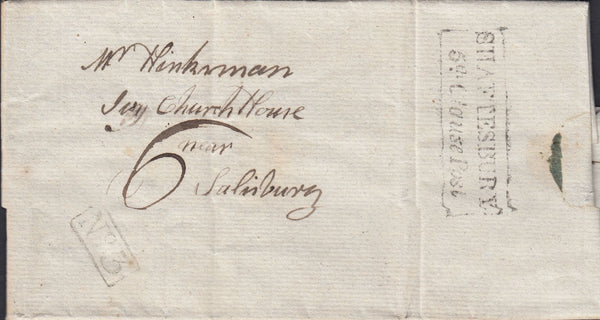 Mr Hinksman
Ivy Church House
near
6
Salisbury
No 3
SHAFTESBURY
5th Clause Post